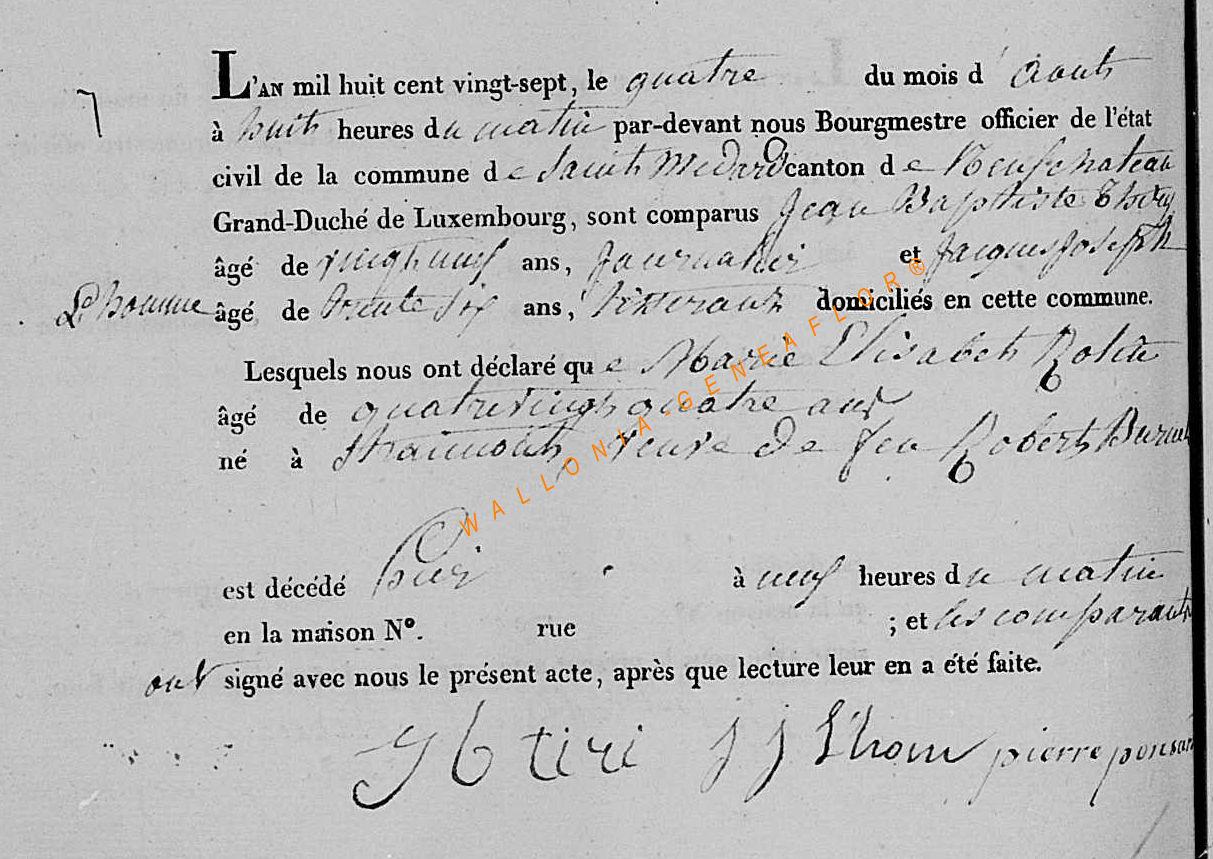 7
L'AN mil huit cent vingt-sept, le quatre du mois d'août
à huit heures du matin par-devant nous Bourgmestre officier de l'état
civil de la commune de Saint Medard canton de Neufchateau
Grand-Duché de Luxembourg, sont comparus Jean Baptiste Thiry
âgé de vingt neuf ans, Journalier et Jacques Joseph
Lhomme âgé de trente six ans, domiciliés en cette commune.
Lesquels nous ont déclaré que Marie Elisabeth
âgé de quatre vingt quatre ans
né à Straimont, veuve de feu Robert
est décédé hier à neuf heures du matin
en la maison N°. rue ; et les comparants
ont signé avec nous le présent acte, après que lecture leur en a été faite.
J b tiri j j Lhom pierre ponsar
WALLONIA-GENEAFLOR®